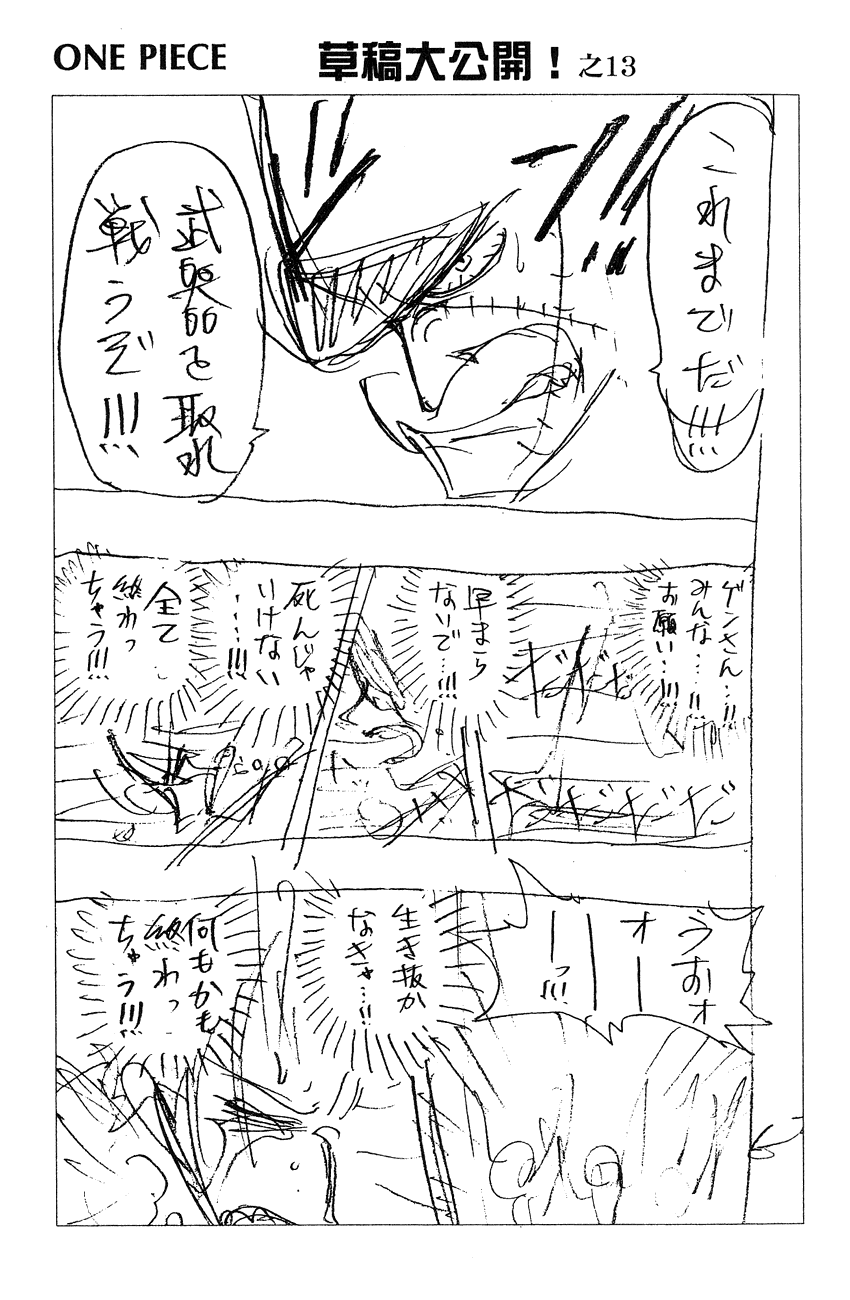 ONE PIECE
草稿大公開！之13
これまでだ!!!
武器を取れ
戦うぞ!!!
ゲンさん…!!
みんな…!!
お願い…!!!
早まら
ないで…!!!
死んじゃ
いけない
…!!!
全て
終わっ
ちゃう!!!
うおォ
オーー
ーーっ!!!
生き抜か
なきゃ…!!
何もかも
終わっ
ちゃう!!!